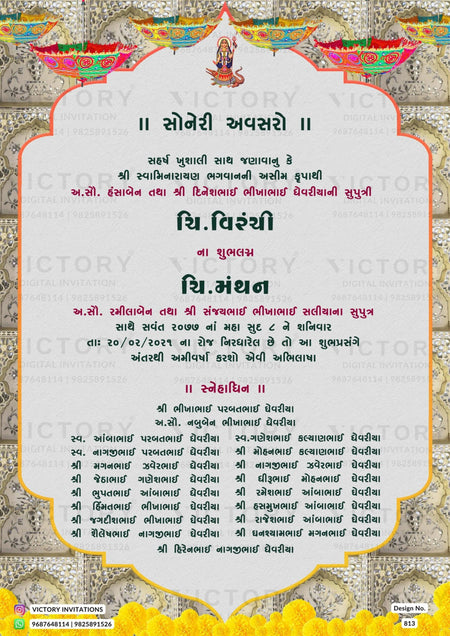 ॥ સોનેરી અવસરો ॥
સહર્ષ ખુશાલી સાથ જણાવાનુ કે
શ્રી સ્વામિનારાયણ ભગવાનની અસીમ કૃપાથી
અ.સૌ. હંસાબેન તથા શ્રી દિનેશભાઈ ભીખાભાઈ ઘેવરીયાની સુપુત્રી
ચિ.વિરંચી
ના શુભલગ્ન
ચિ.મંથન
અ.સૌ. રમીલાબેન તથા શ્રી સંજયભાઈ ભીખાભાઈ સલીયાના સુપુત્ર
સાથે સવંત ૨૦૭૭ નાં મહા સુદ ૮ ને શનિવાર
તાઃ ૨૦/૦૨/૨૦૨૧ ના રોજ નિરધારેલ છે તો આ શુભપ્રસંગે
અંતરથી અમીવર્ષા કરશો એવી અભિલાષા
॥ સ્નેહાધિન ॥
શ્રી ભીખાભાઈ પરબતભાઈ ઘેવરીયા
અ.સૌ. નબુબેન ભીખાભાઈ ઘેવરીયા
સ્વ. આંબાભાઈ પરબતભાઈ ઘેવરીયા
સ્વ. નાગજીભાઈ પરબતભાઈ ઘેવરીયા
શ્રી મગનભાઈ ઝવેરભાઈ ઘેવરીયા
શ્રી જેઠાભાઈ ગણેશભાઈ ઘેવરીયા
શ્રી ભુપતભાઈ આંબાભાઈ ઘેવરીયા
શ્રી હિંમતભાઈ ભીખાભાઈ ઘેવરીયા
શ્રી જગદીશભાઈ ભીખાભાઈ ઘેવરીયા
શ્રી શૈલેષભાઈ નાગજીભાઈ ઘેવરીયા
સ્વ.ગણેશભાઈ કલ્યાણભાઈ ઘેવરીયા
શ્રી મોહનભાઈ કલ્યાણભાઈ ઘેવરીયા
શ્રી નાગજીભાઈ ઝવેરભાઈ ઘેવરીયા
શ્રી ધીરૂભાઈ મોહનભાઈ ઘેવરીયા
શ્રી રમેશભાઈ આંબાભાઈ ઘેવરીયા
શ્રી હસમુખભાઈ આંબાભાઈ ઘેવરીયા
શ્રી રાજેશભાઈ આંબાભાઈ ઘેવરીયા
શ્રી ઘનશ્યામભાઈ મગનભાઈ ઘેવરીયા
શ્રી હિરેનભાઈ નાગજીભાઈ ઘેવરીયા
VICTORY INVITATIONS
9687648114 | 9825891526
Design No.
813
VICTORY
DIGITAL INVITATION
9687648114 | 9825891526